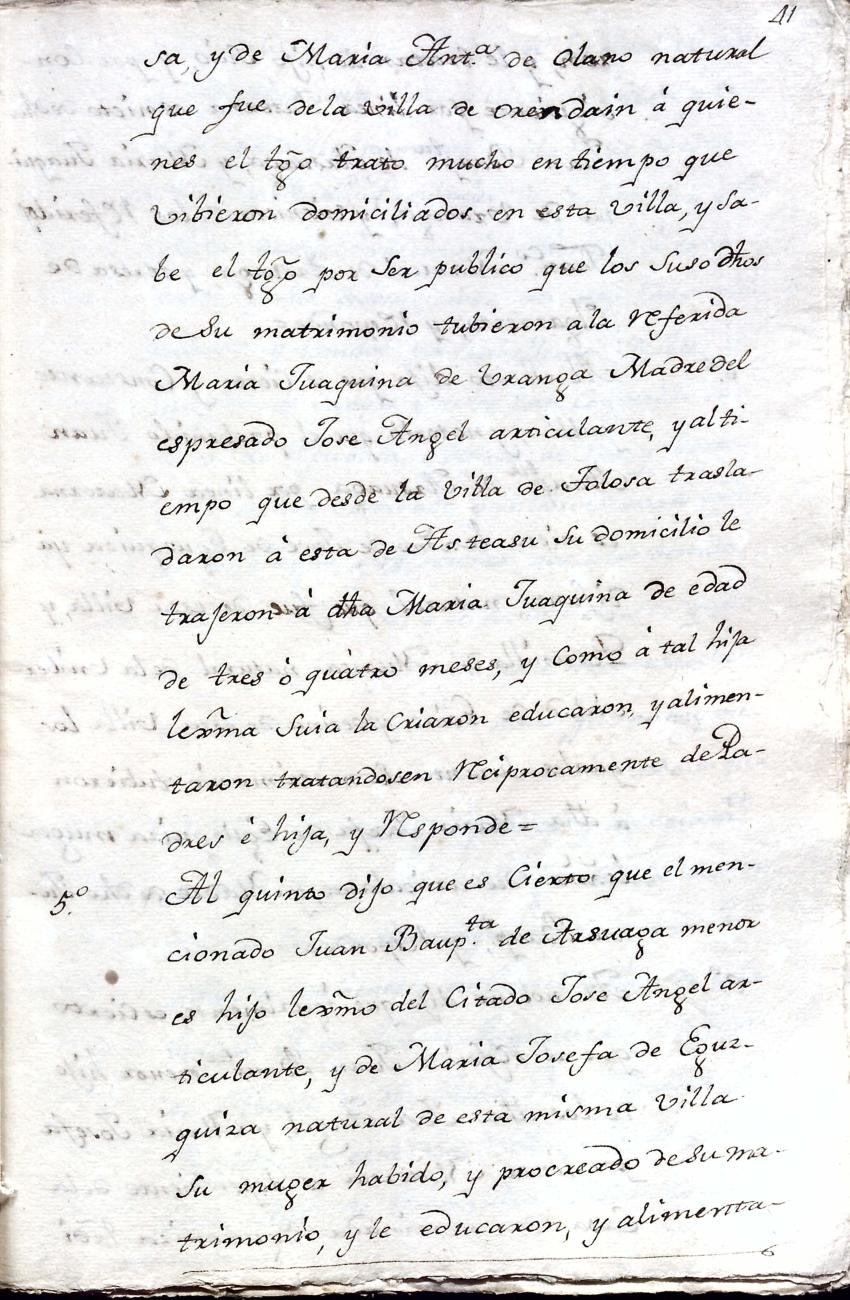 41
sa, y de Maria Ant.ª de Olano natural
que fue dela villa de Orendain á quie-
nes el tg̃o trato mucho en tiempo que
vibieron domiciliados en esta villa, y sa-
be el tg̃o por ser publico que los susodhos
de su matrimonio tubieron a la referida
Maria Juaquina de Uranga Madre del
espresado Jose Angel articulante, y al ti-
empo que desde la villa de Tolosa trasla-
daron á esta de Asteasu su domicilio le
trajeron á dha Maria Juaquina de edad
de tres ó quatro meses, y Como á tal hija
lexm̃a suia la Criaron educaron, y alimen-
taron tratandosen reciprocamente de Pa-
dres é hija, y responde=
5.º Al quinto dijo que es Cierto que el men-
cionado Juan Baup.ta de Arsuaga menor
es hijo lexm̃o del Citado Jose Angel ar-
ticulante, y de Maria Josefa de Egur-
quiza natural de esta misma villa
su muger habido, y procreado de su ma-
trimonio, y le educaron, y alimenta-